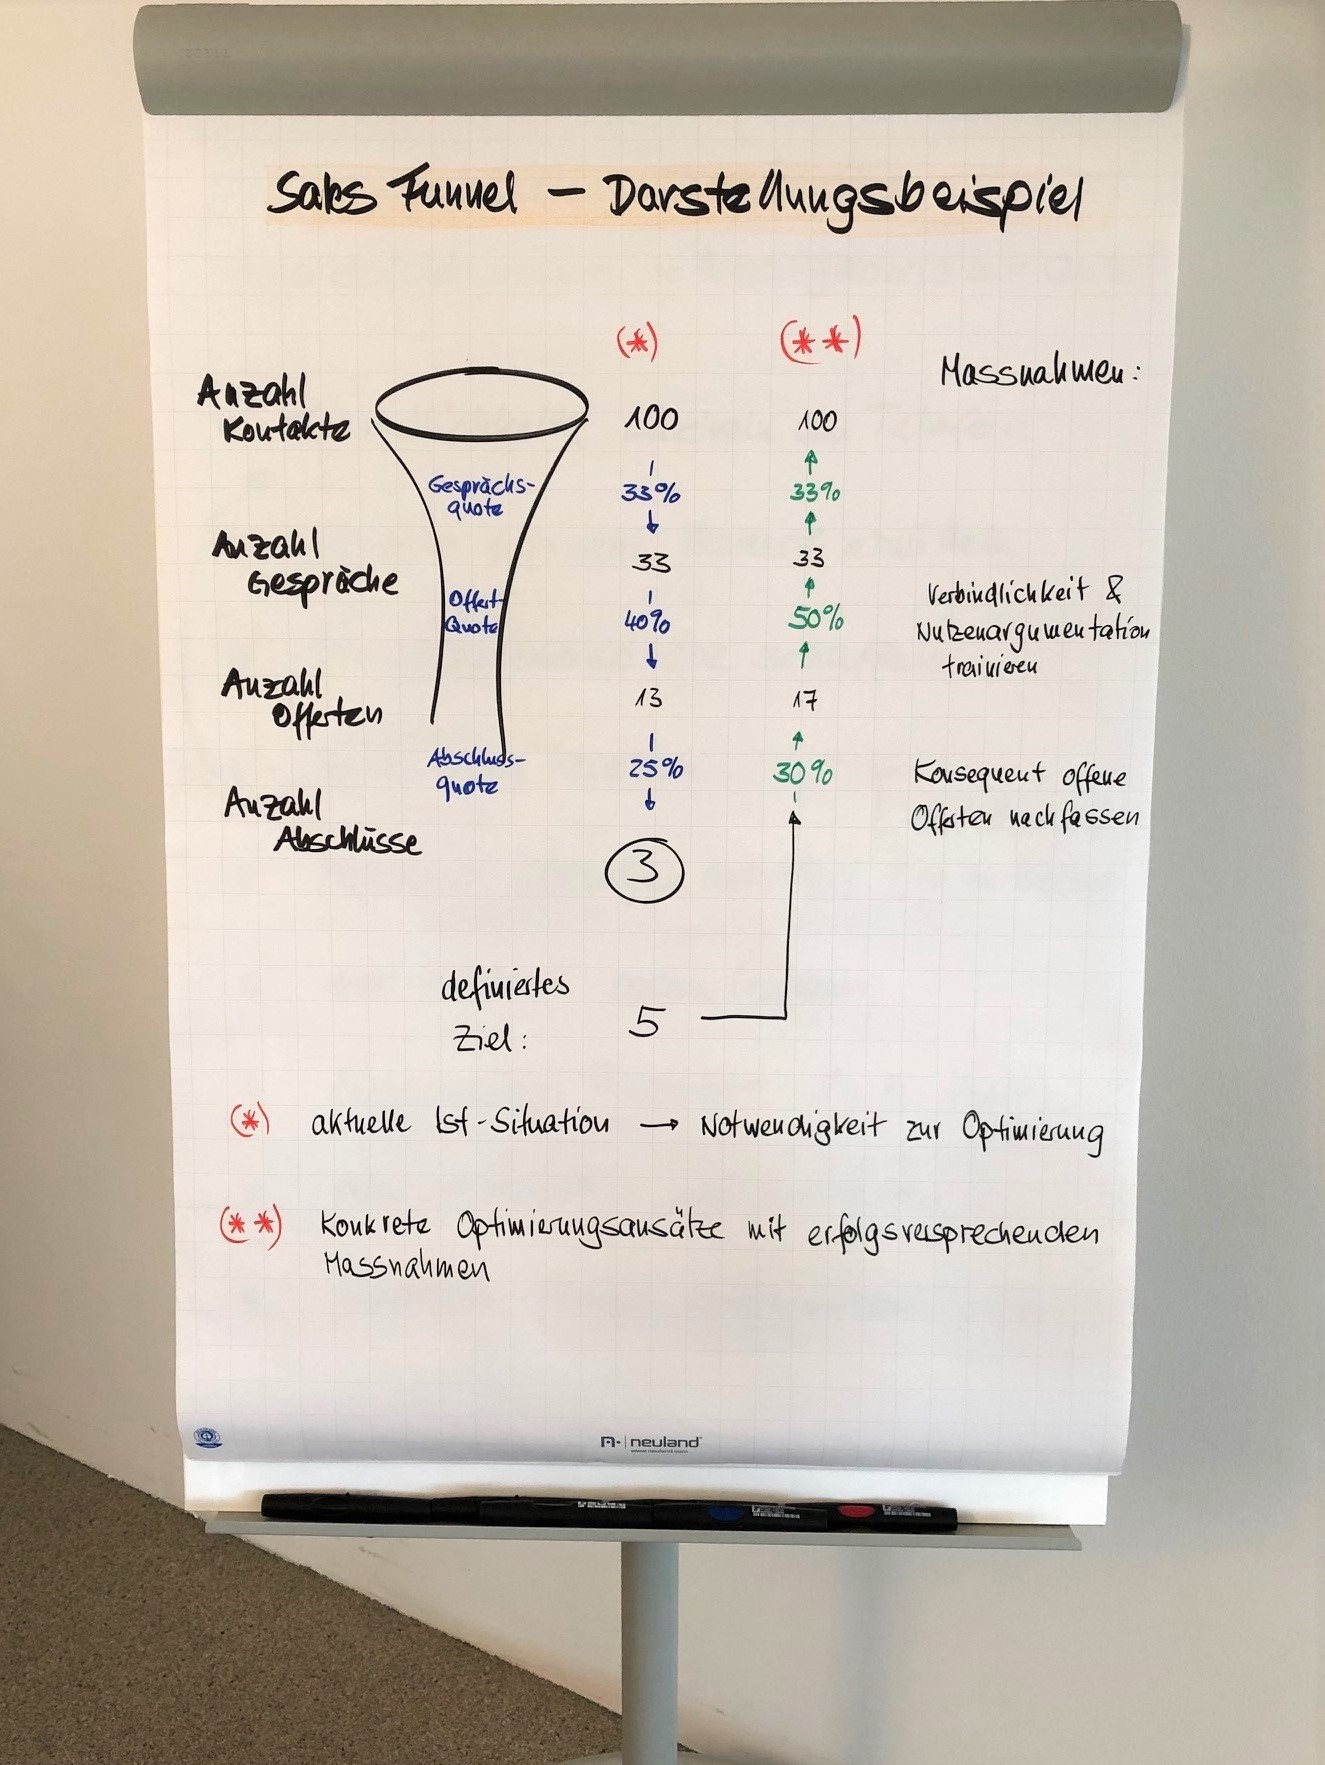 Sales Funnel – Darstellungsbeispiel
(*) (**)
Massnahmen:
Anzahl
Kontakte
100 100
Gesprächs-
quote
33% 33%
Anzahl
Gespräche
33 33
Offert-
Quote
40% 50%
Verbindlichkeit &
Nutzenargumentation
trainieren
Anzahl
Offerten
13 17
Abschluss-
quote
25% 30%
Konsequent offene
Offerten nachfassen
Anzahl
Abschlüsse
3
definiertes
Ziel:
5
(*) aktuelle Ist-Situation → Notwendigkeit zur Optimierung
(**) Konkrete Optimierungsansätze mit erfolgsversprechenden
Massnahmen
neuland
www.neuland.com